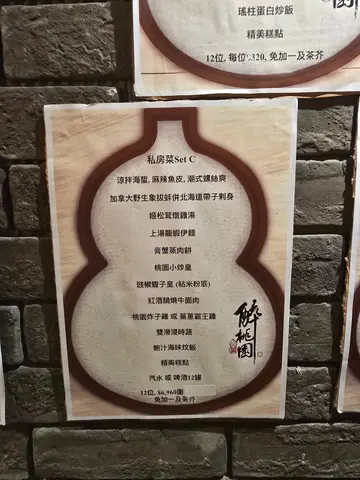 瑤柱蛋白炒飯
精美糕點
12位, 每位$320, 免加一及茶芥
私房菜Set C
涼拌海蜇, 麻辣魚皮, 潮式螺絲爽
加拿大野生象拔蚌併北海道帶子刺身
姬松茸燉雞湯
上湯龍蝦伊麵
膏蟹蒸肉餅
桃園小炒皇
豉椒蟶子皇 (粘米粉底)
紅酒鍋燒牛面肉
桃園炸子雞 或 薑蔥霸王雞
雙滑浸時蔬
鮑汁海味炆飯
精美糕點
汽水 或 啤酒12罐
12位, $6,960圍
免加一及茶芥
醉桃園